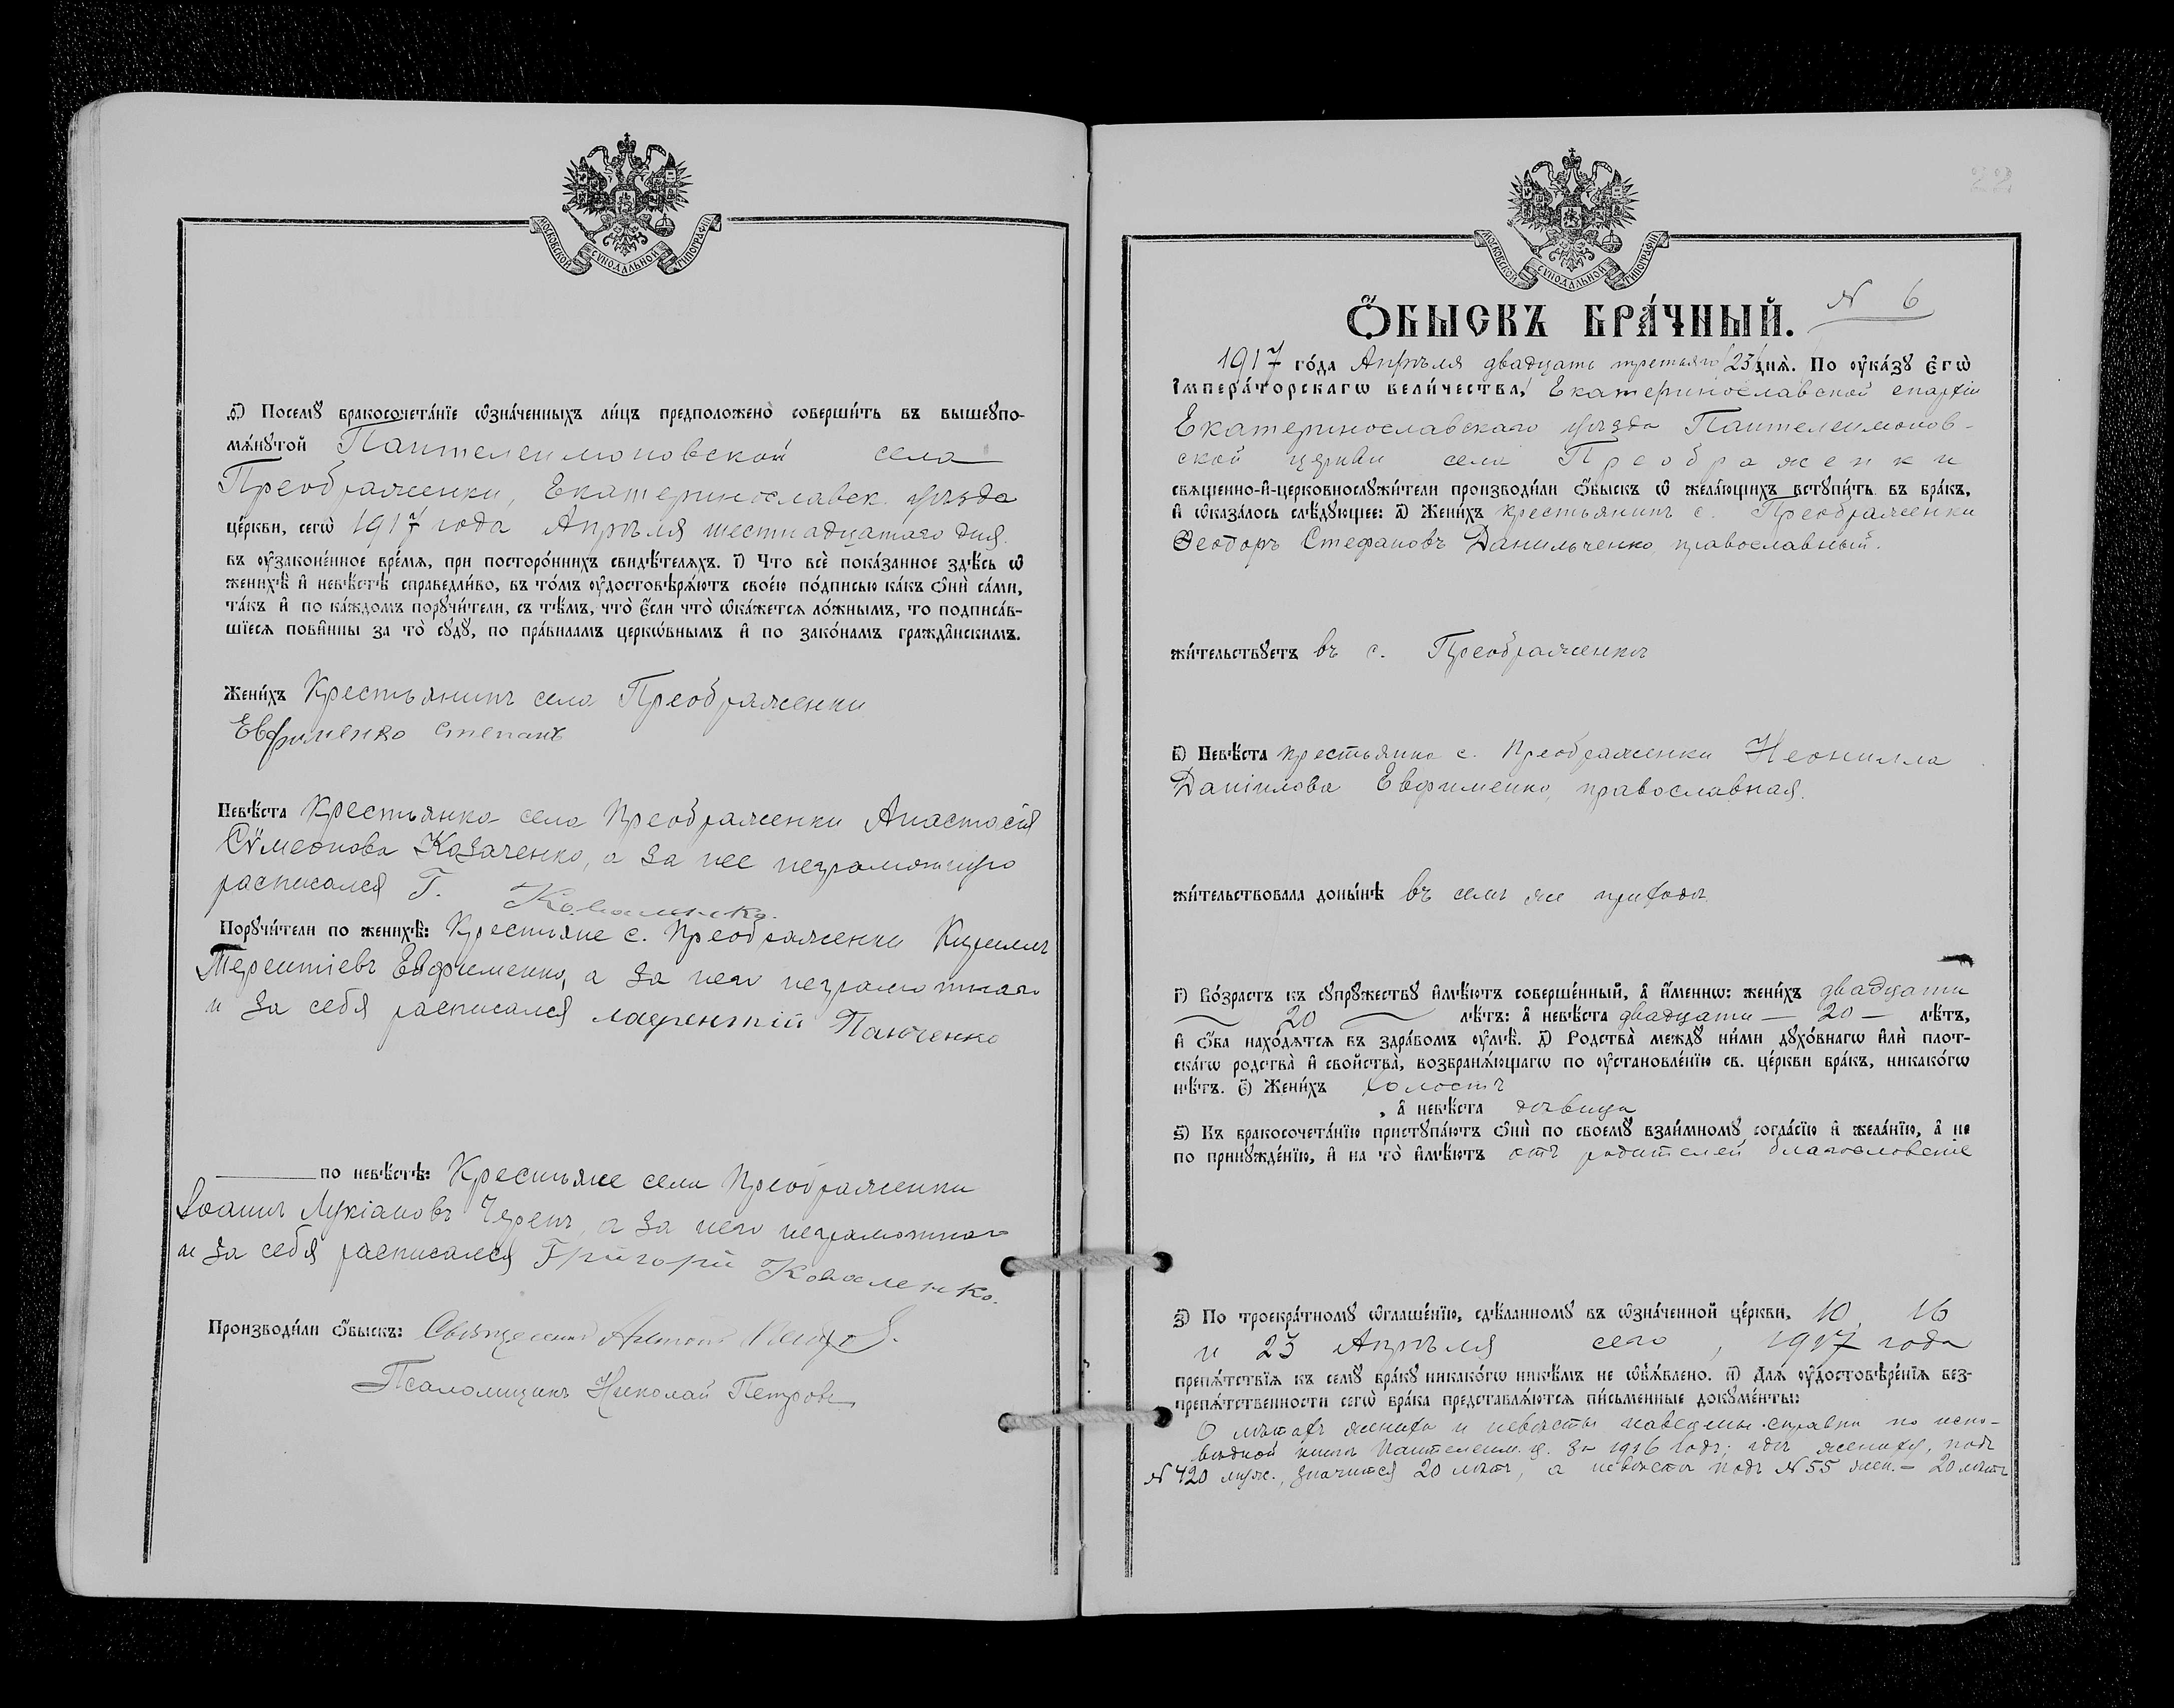 МОСКОВСКОЙ СѴНОДАЛЬНОЙ ТИПОГРАФІИ
Посемꙋ бракосочета́нїе ѡ҆зна́ченныхъ ли́цъ предположено̀ соверши́ть въ вышеꙋпо-
мѧ́нꙋтой Пантелеимоновской села
Преображенки, Екатеринославск. уѣзда
це́ркви, сегѡ̀ 1917 года Апрѣля шестнадцатаго дня
въ ᲂу҆зако́ненное вре́мѧ, при посторо́ннихъ свидѣ́телѧхъ. і҃) Что̀ всѐ пока́занное здѣ́сь ѡ҆
женихѣ̀ и҆ невѣ́стѣ справедли́во, въ то́мъ ᲂу҆достовѣрѧ́ютъ свое́ю по́дписью ка́къ ѻ҆нѝ са́ми,
та́къ и҆ по ка́ждомъ порꙋчи́тели, съ тѣ́мъ, что̀ є҆́сли что̀ ѡ҆ка́жетсѧ ло́жнымъ, то подписа́в-
шїесѧ пови́нны за то̀ сꙋдꙋ̀, по пра́виламъ церкѡ́внымъ и҆ по зако́намъ гражда́нскимъ.
Жени́хъ Крестьянинъ села Преображенки
Евфименко Степанъ
Невѣ́ста Крестьянка села Преображенки Анастасія
Сѵмеонова Казаченко, а за нее неграмотную
расписался Г. Коваленко.
Порꙋчи́тели по женихѣ̀: Крестьяне с. Преображенки Кириллъ
Терентіевъ Евфименко, а за него неграмотнаго
и за себя расписался лаврентій Панченко
по невѣ́стѣ: Крестьяне села Преображенки
Іоаннъ Лукіановъ Черепъ, а за него неграмотнаго
и за себя расписался Григорій Коваленко.
Производи́ли ѻ҆́быскъ: Священникъ Антоній
Псаломщикъ Николай Петровъ
МОСКОВСКОЙ СѴНОДАЛЬНОЙ ТИПОГРАФІИ
N 6
Ѻ҆́БЫСКЪ БРА́ЧНЫЙ.
1917 го́да Апрѣля двадцать третьяго /23/ днѧ̀. По ᲂу҆ка́зꙋ Є҆гѡ̀
І҆мпера́торскагѡ вели́чества, Екатеринославской епархіи
Екатеринославскаго уѣзда Пантелеимонов-
ской церкви села Преображенки
свѧще́нно-и҆-церковнослꙋжи́тели производи́ли ѻ҆́быскъ ѡ҆ жела́ющихъ встꙋпи́ть въ бра́къ,
и҆ ѡ҆каза́лось слѣ́дꙋющее: а҃) Жени́хъ крестьянинъ с. Преображенки
Ѳеодоръ Стефановъ Данильченко, православный.
жи́тельствꙋетъ въ с. Преображенкѣ
в҃) Невѣ́ста крестьянка с. Преображенки Неонилла
Даніилова Евфименко, православная.
жи́тельствовала доны́нѣ въ семъ же приходѣ
г҃) Во́зрастъ къ сꙋпрꙋ́жествꙋ и҆мѣ́ютъ соверше́нный, а҆ и҆́меннѡ: жени́хъ двадцати
20 лѣ́тъ: а҆ невѣ́ста двадцати — 20 — лѣ́тъ,
и҆ ѻ҆́ба нахо́дѧтсѧ въ здра́вомъ ᲂу҆мѣ̀. д҃) Родства̀ междꙋ ни́ми дꙋхо́внагѡ и҆лѝ плот-
ска́гѡ родства̀ и҆ свойства̀, возбранѧ́ющагѡ по ᲂу҆становле́нїю св. це́ркви бра́къ, никако́гѡ
нѣ́тъ. є҃) Жени́хъ холостъ
, а҆ невѣ́ста дѣвица
ѕ҃) Къ бракосочета́нїю пристꙋпа́ютъ ѻ҆нѝ по своемꙋ̀ взаи́мномꙋ согла́сїю и҆ жела́нїю, а҆ не
по принꙋжде́нїю, и҆ на что̀ и҆мѣ́ютъ отъ родителей благословеніе
з҃) По троекра́тномꙋ ѡ҆глаше́нїю, сдѣ́ланномꙋ въ ѡ҆зна́ченной це́ркви, 10, 16
и 23 Апрѣля сего , 1917 года
препѧ́тствїѧ къ семꙋ̀ бра́кꙋ никако́гѡ никѣ́мъ не ѡ҆б̾ѧ́влено. и҃) Длѧ ᲂу҆достовѣре́нїѧ без-
препѧ́тственности сегѡ̀ бра́ка представлѧ́ютсѧ пи́сьменные докꙋме́нты:
О лѣтахъ жениха и невѣсты наведены справки по испо-
вѣдной книгѣ Пантелеим. ц. за 1916 годъ; гдѣ жениху, подъ
N 420 муж., значится 20 лѣтъ, а невѣста подъ N 55 жен. — 20 лѣтъ